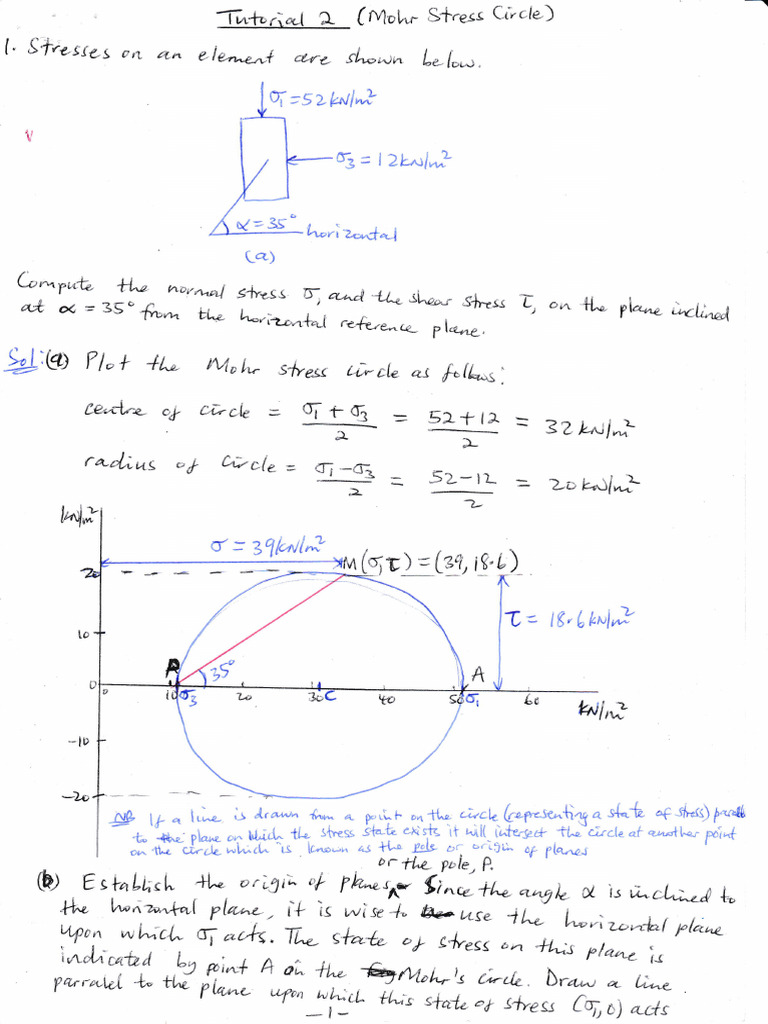 Tutorial 2 (Mohr Stress Circle)
1. Stresses on an element are shown below.
σ1 = 52 kN/m²
σ3 = 12 kN/m²
α = 35°
horizontal
(a)
Compute the normal stress σ, and the shear stress τ, on the plane inclined
at α = 35° from the horizontal reference plane.
Sol: (a) Plot the Mohr stress circle as follows:
centre of circle = (σ1 + σ3)/2 = (52+12)/2 = 32 kN/m²
radius of circle = (σ1 - σ3)/2 = (52-12)/2 = 20 kN/m²
kN/m²
σ = 39 kN/m²
M(σ, τ) = (39, 18.6)
20
τ = 18.6 kN/m²
10
P
35°
A
0
0 10 σ3 20 30 C 40 50 σ1 60
kN/m²
-10
-20
NB If a line is drawn from a point on the circle (representing a state of stress) parallel
to the plane on which the stress state exists it will intersect the circle at another point
on the circle which is known as the pole or origin of planes
or the pole, P.
(b) Establish the origin of planes. Since the angle α is inclined to
the horizontal plane, it is wise to use the horizontal plane
upon which σ1 acts. The state of stress on this plane is
indicated by point A on the Mohr's circle. Draw a line
parralel to the plane upon which this state of stress (σ1, 0) acts
-1-